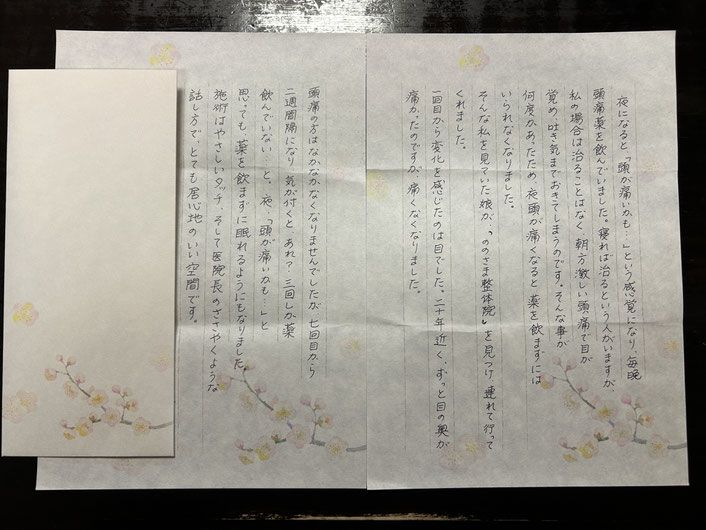 夜になると「頭が痛いかも…」という感覚になり、毎晩
頭痛薬を飲んでいました。寝れば治るという人がいますが、
私の場合は治ることはなく、朝方激しい頭痛で目が
覚め、吐き気までおきてしまうのです。そんな事が
何度かあったため、夜頭が痛くなると薬を飲まずには
いられなくなりました。
そんな私を見ていた娘が、『ののさま整体院』を見つけ、連れて行って
くれました。
一回目から変化を感じたのは目でした。二十年近く、ずっと目の奥が
痛かったのですが、痛くなくなりました。
頭痛の方はなかなかなくなりませんでしたが、七回目から
二週間隔になり、気が付くと、あれ?三回しか薬
飲んでいない…と。夜、「頭が痛いかも…」と
思っても、薬を飲まずに眠れるようにもなりました。
施術はやさしいタッチ、そして医院長のささやくような
話し方で、とても居心地のいい空間です。